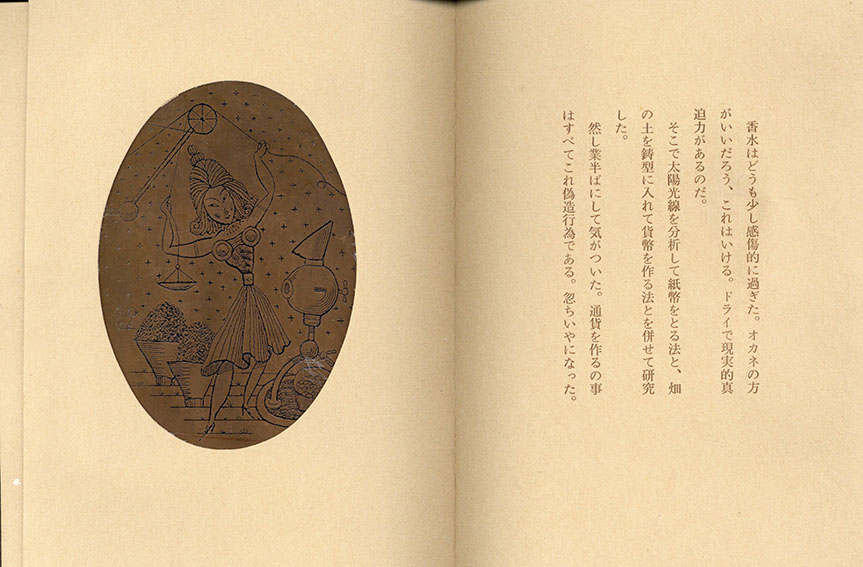 香水はどうも少し感傷的に過ぎた。オカネの方
がいいだろう、これはいける。ドライで現実的真
迫力があるのだ。
そこで太陽光線を分析して紙幣をとる法と、畑
の土を鋳型に入れて貨幣を作る法とを併せて研究
した。
然し業半ばにして気がついた。通貨を作るの事
はすべてこれ偽造行為である。忽ちいやになった。